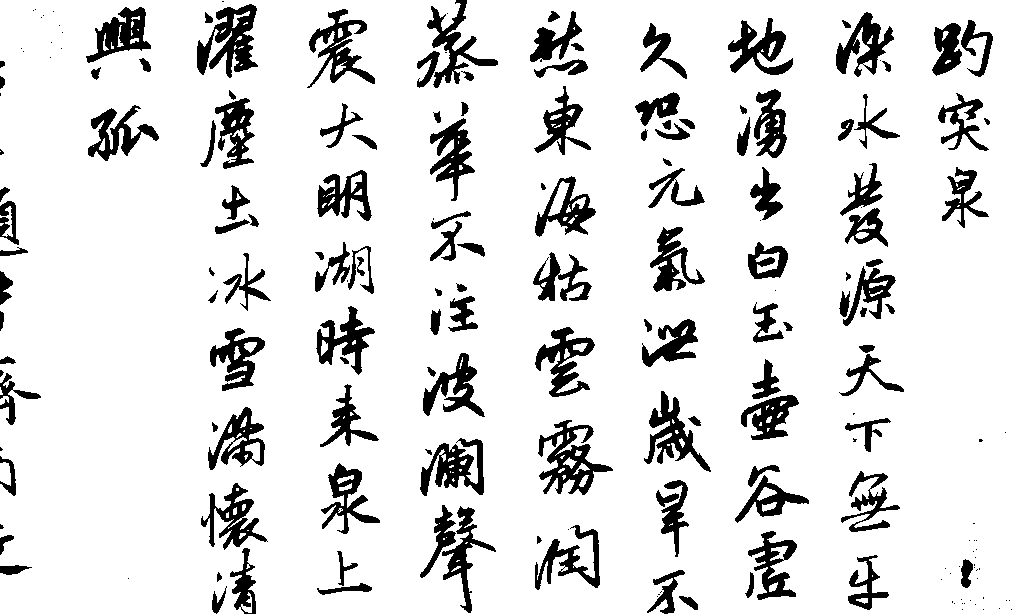 趵突泉
濼水發源天下無平
地湧出白玉壺谷虛
久恐元氣泄歲旱不
愁東海枯雲霧潤
蒸華不注波瀾聲
震大明湖時来泉上
濯塵土冰雪滿懷清
興孤